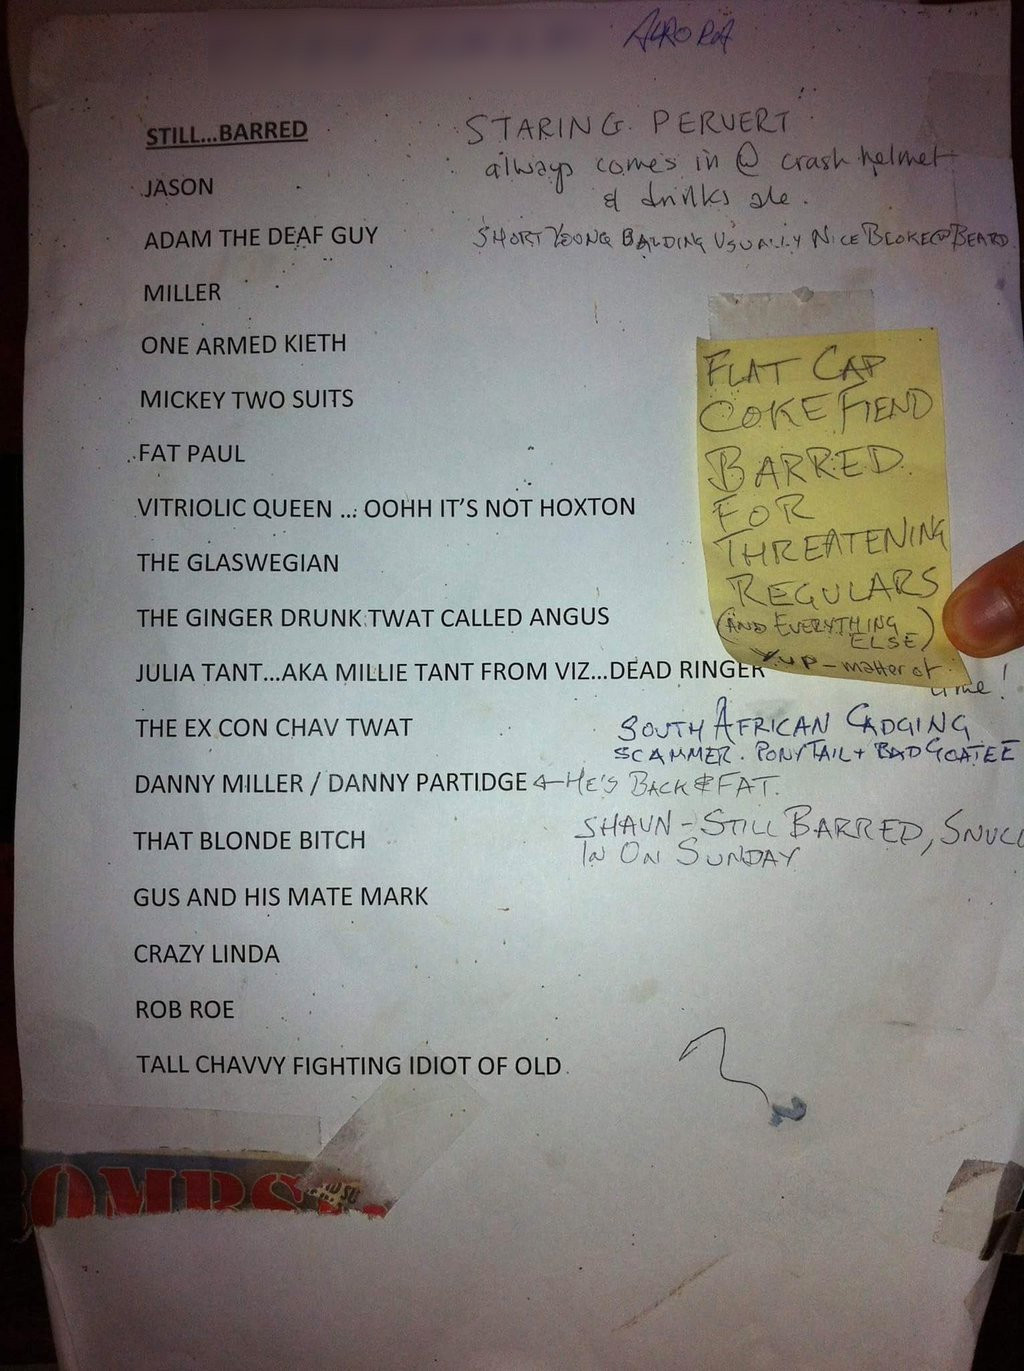 STILL...BARRED
STARING PERVERT
always comes in @ crash helmet
& drinks ale.
JASON
ADAM THE DEAF GUY
SHORT YOUNG BALDING USUALLY NICE BLOKE @ BEARD
MILLER
ONE ARMED KIETH
MICKEY TWO SUITS
FAT PAUL
VITRIOLIC QUEEN ... OOHH IT'S NOT HOXTON
THE GLASWEGIAN
THE GINGER DRUNK TWAT CALLED ANGUS
JULIA TANT...AKA MILLIE TANT FROM VIZ...DEAD RINGER
FLAT CAP
COKE FIEND
BARRED
FOR
THREATENING
REGULARS
(AND EVERYTHING
ELSE)
Yup - matter of
time!
THE EX CON CHAV TWAT
SOUTH AFRICAN CADGING
SCAMMER. PONYTAIL + BAD GOATEE
DANNY MILLER / DANNY PARTIDGE ← HE'S BACK & FAT.
THAT BLONDE BITCH
SHAUN - STILL BARRED, SNUC
IN ON SUNDAY
GUS AND HIS MATE MARK
CRAZY LINDA
ROB ROE
TALL CHAVVY FIGHTING IDIOT OF OLD